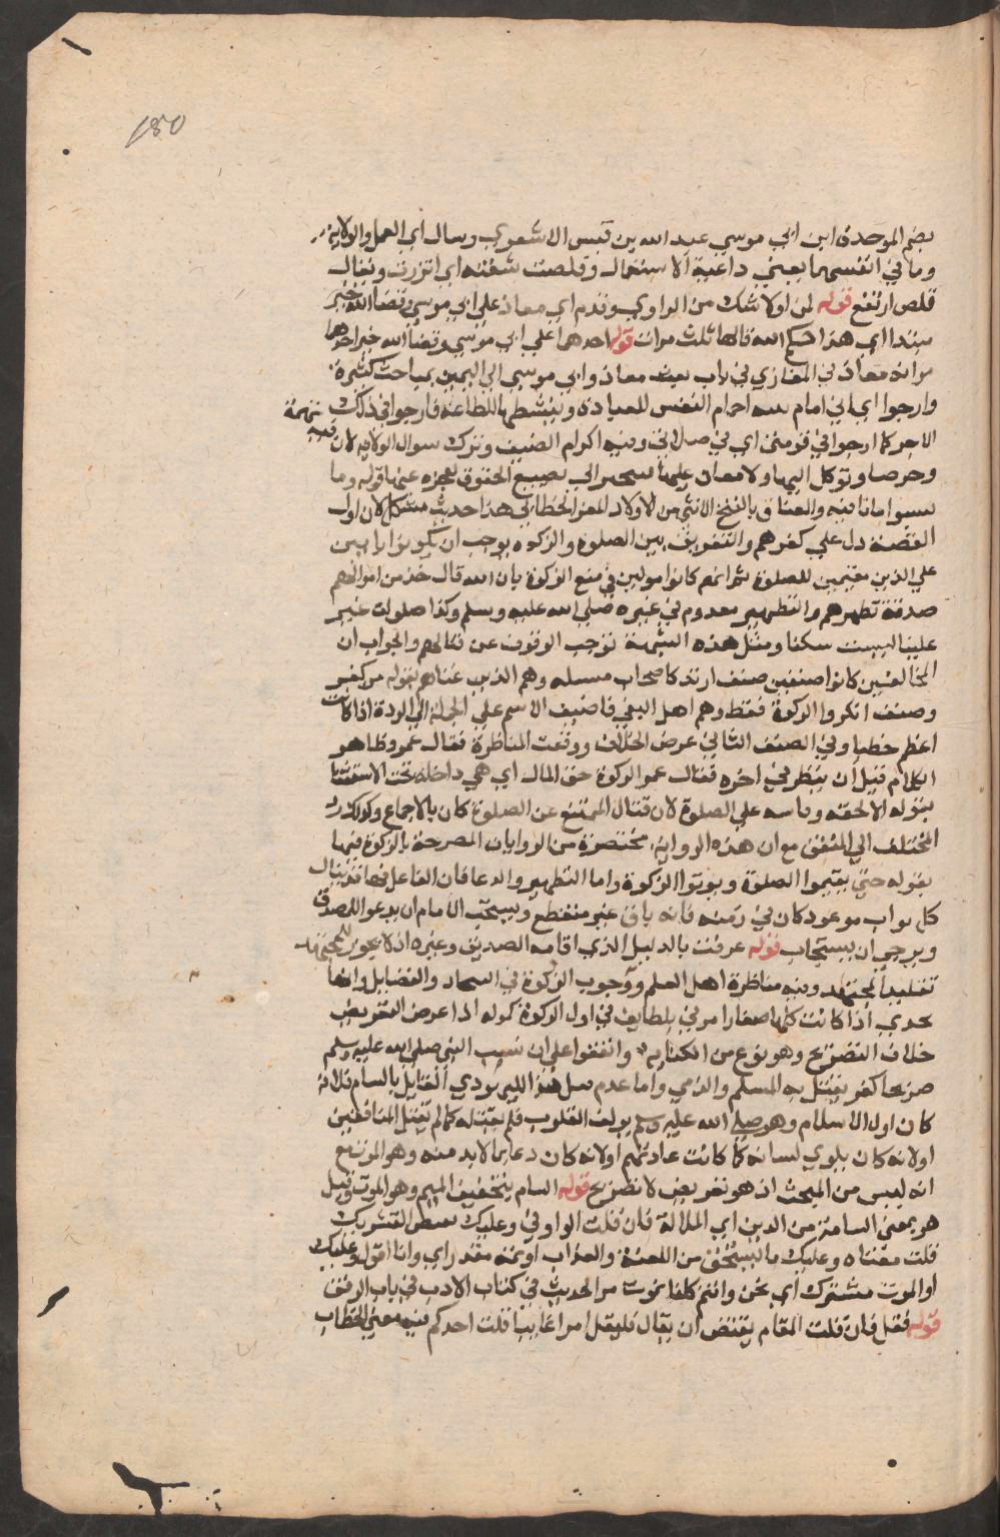 بضم الموحدة ابن ابي موسي عبد الله بن قيس الاشعري وسال اي العمل والولاية
وما في انفسهما يعني داعية الاستعمال وقلصت شفته اي انزرت ويقال
قلص ارتفع قوله لن اولا شك من الراوي وقدم اي معاذ علي ابي موسي وقضا الله خبر
مبتدا اي هذا حكم الله قالها ثلث مرات قوله احدهما علي ابي موسي وقضا الله خبر احدهما
مر انه معاذ في المغازي في باب بعث معاذ وابي موسي الي اليمن بمباحث كثيرة
وارجوا اي اني امام بنية اجمام النفس للعبادة وينشطها للطاعة فارجوا في ذلك
الاجر كما ارجوا في قومتي اي في صلاتي وفيه اكرام الضيف وترك سوال الولاية لان فيه تهمة
وحرصا وتوكل اليها ولا معان عليها فينجر الي تضييع الحقوق لعجزه عنها قوله وما
نسبوا مانافيه والعناق بالفتح الانثي من الاولاد المعز الخطابي هذا حديث مشكل لان اول
القصة دل علي كفرهم والتفريق بين الصلوة والزكوة يوجب ان يكونوا
علي الدين مقيمين للصلوة ثم انهم كانوا مولين في منع الزكوة بان الله قال خذ من اموالهم
صدقة تطهرهم والتطهير معدوم في غيره صلي الله عليه وسلم وكذا صلوات غير
علينا ليست سكنا ومثل هذه الشبهة توجب الوقوف عن قتالهم والجواب ان
المخالفين كانوا صنفين صنف ارتد كاصحاب مسيلمه وهم الذين عناهم بقوله من كفر
وصنف انكروا الزكوة فقط وهم اهل البغي فاضيف الاسم علي الجملة الي الردة اذ كانت
اعظم خطبا وفي الصنف الثاني عرض الخلاف ووقعت المناظرة فقال عمر وظاهر
الكلام قبل ان ينظر في اخره فقال عمر الزكوة حق المال اي هي داخلة تحت الاستثنا
بقوله الا بحقه وقاسه علي الصلوة لان قتال الممتنع عن الصلوة كان بالاجماع ولذلك رد
المختلف الي المتفق مع ان هذه الرواية مختصرة من الروايات المصرحة بالزكوة فيها
بقوله حتي يقيموا الصلوة ويوتوا الزكوة واما التطهير والدعا فان الفاعل فيها قد ينال
كل ثواب موعود كان في زمنه فانه باق غير منقطع ويستحب للامام ان يدعوا للمصدق
ويرجي ان يستجاب قوله عرفت بالدليل الذي اقامه الصديق وغيره اذ لا يجوز للمجتهد
تقليد المجتهد وفيه مناظرة اهل العلم ووجوب الزكوة في السخال والفصايل وانها
تجزي اذا كانت كلها صغارا مر في بلطايف في اول الزكوة قوله اذا عرض التعريض
خلاف التصريح وهو نوع من الكناية واتفقوا علي ان نسب النبي صلي الله عليه وسلم
صريحا كفر يقتل به المسلم والذمي واما عدم قتل هذا اليهودي القايل بالسام فلانه
كان اول الاسلام وهو صلي الله عليه وسلم يولف القلوب فلم يقتله كما لم يقتل المنافقين
اولانه كان يلوي لسانه كما كانت عادتهم اولانه كان دعا بما لابد منه وهو الموت مع
انه ليس من المبحث اذ هو تعريض لا تصريح قوله السام بتخفيف الميم وهو الموت وقيل
هو بمعني السامة من الدين اي الملالة فان قلت الواو في وعليك تقتضي التشريك
قلت معناه وعليك ما تستحق من اللعنة والعذاب او ثمة مقدر اي وانا اقول وعليك
او الموت مشترك اي نحن وانتم كلنا نموت مر الحديث في كتاب الادب في باب الرفق
قوله فقل فان قلت المقام يقتضي ان يقال فليقل امرا غايبا قلت احدكم فيه معني الخطاب